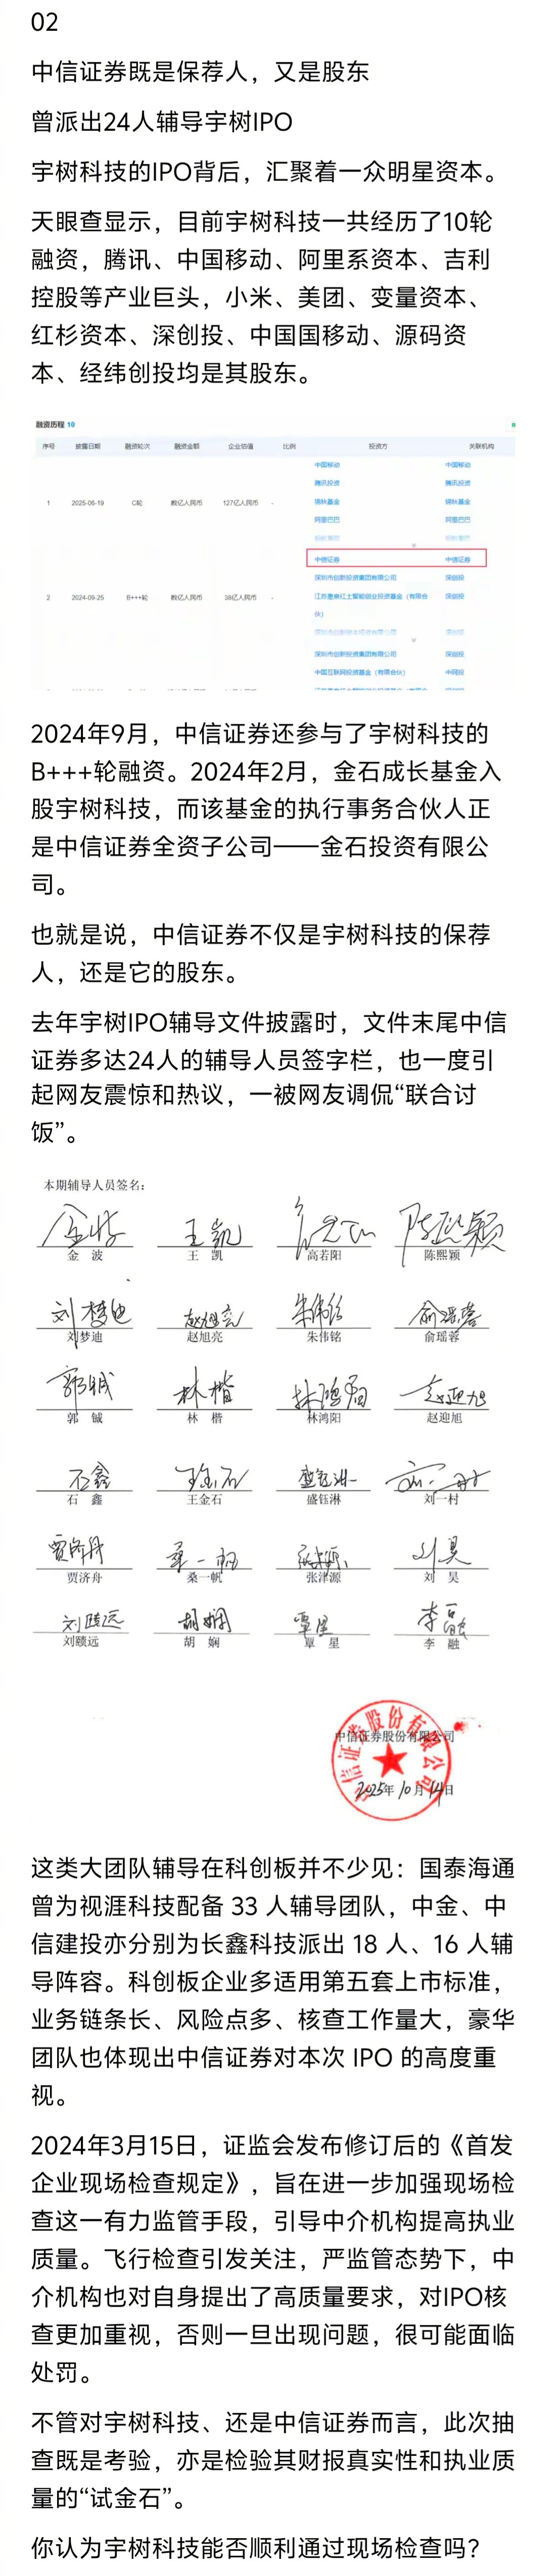 02
中信证券既是保荐人，又是股东
曾派出24人辅导宇树IPO
宇树科技的IPO背后，汇聚着一众明星资本。
天眼查显示，目前宇树科技一共经历了10轮
融资，腾讯、中国移动、阿里系资本、吉利
控股等产业巨头，小米、美团、变量资本、
红杉资本、深创投、中国国移动、源码资
本、经纬创投均是其股东。
融资历程 10
序号 披露日期 融资轮次 融资金额 企业估值 比例 投资方 关联机构
中国移动 中国移动
腾讯投资 腾讯投资
1 2025-06-19 C轮 数亿人民币 127亿人民币 - 锦秋基金 锦秋基金
阿里巴巴 阿里巴巴
中信证券 中信证券
深圳市创新投资集团有限公司 深创投
2 2024-09-25 B+++轮 数亿人民币 38亿人民币 - 江苏惠泉红土智能创业投资基金（有限合
伙） 深创投
深圳市创新投资集团有限公司 深创投
中国互联网投资基金（有限合伙） 中网投
2024年9月，中信证券还参与了宇树科技的
B+++轮融资。2024年2月，金石成长基金入
股宇树科技，而该基金的执行事务合伙人正
是中信证券全资子公司——金石投资有限公
司。
也就是说，中信证券不仅是宇树科技的保荐
人，还是它的股东。
去年宇树IPO辅导文件披露时，文件末尾中信
证券多达24人的辅导人员签字栏，也一度引
起网友震惊和热议，一被网友调侃“联合讨
饭”。
本期辅导人员签名：
金波 王凯 高若阳 陈熙颖
金 波 王 凯 高若阳 陈熙颖
刘梦迪 赵旭亮 朱伟铭 俞瑶蓉
刘梦迪 赵旭亮 朱伟铭 俞瑶蓉
郭铖 林楷 林鸿阳 赵迎旭
郭 铖 林 楷 林鸿阳 赵迎旭
石鑫 王金石 盛钰淋 刘一村
石 鑫 王金石 盛钰淋 刘一村
贾济舟 桑一帆 张津源 刘昊
贾济舟 桑一帆 张津源 刘 昊
刘赜远 胡娴 覃星 李融
刘赜远 胡 娴 覃 星 李 融
中信证券股份有限公司
中信证券股份有限公司
2025年10月14日
这类大团队辅导在科创板并不少见：国泰海通
曾为视涯科技配备 33 人辅导团队，中金、中
信建投亦分别为长鑫科技派出 18 人、16 人辅
导阵容。科创板企业多适用第五套上市标准，
业务链条长、风险点多、核查工作量大，豪华
团队也体现出中信证券对本次 IPO 的高度重
视。
2024年3月15日，证监会发布修订后的《首发
企业现场检查规定》，旨在进一步加强现场检
查这一有力监管手段，引导中介机构提高执业
质量。飞行检查引发关注，严监管态势下，中
介机构也对自身提出了高质量要求，对IPO核
查更加重视，否则一旦出现问题，很可能面临
处罚。
不管对宇树科技、还是中信证券而言，此次抽
查既是考验，亦是检验其财报真实性和执业质
量的“试金石”。
你认为宇树科技能否顺利通过现场检查吗？